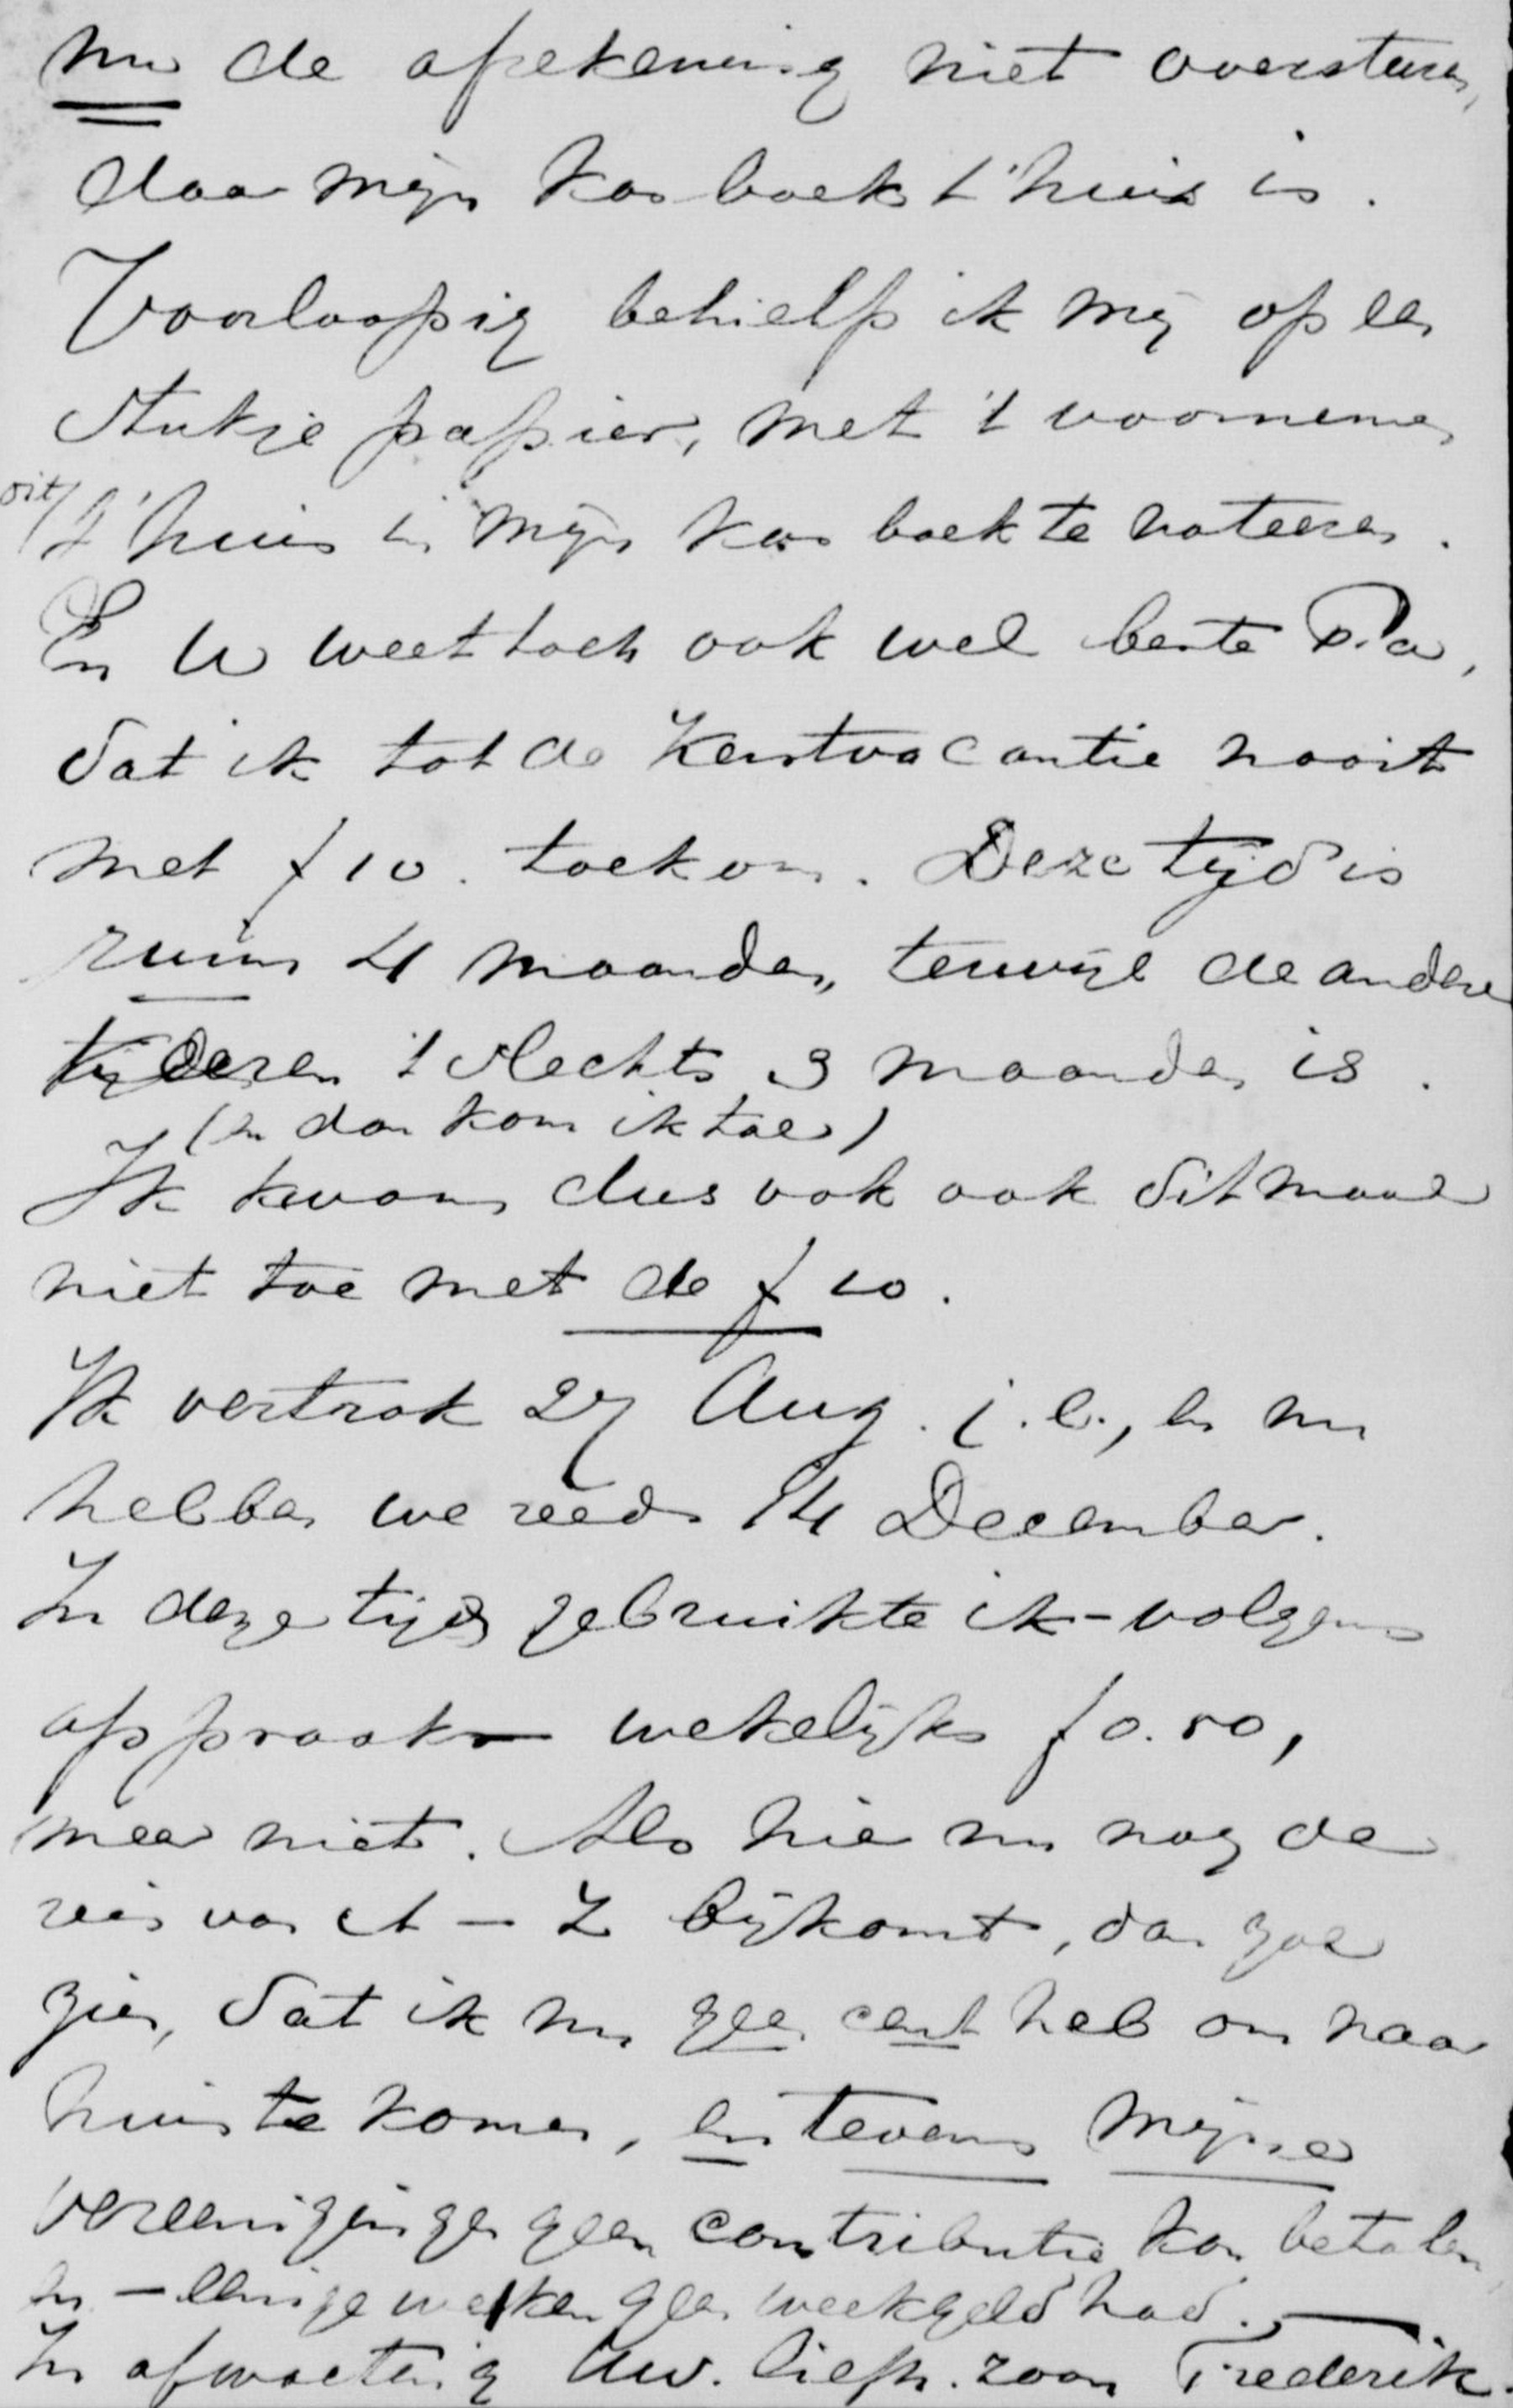 nu de afrekening niet oversturen,
daar mijn kasboek t'huis is.
Voorloopig behielp ik mij op een
stukje papier, met 't voornemen
dit
t'huis in mijn kasboek te noteeren.
En U weet toch ook wel beste Pa,
dat ik tot de Kerstvacantie nooit
met f 10. toekom. Deze tijd is
ruim 4 maanden, terwijl de andere
tijden 't slechts 3 maanden is.
(en dan kom ik toe)
Ik kwam dus ook ook ditmaal
niet toe met de f 10.
Ik vertrok 27 Aug. j.l., en nu
hebben we reeds 14 December.
In deze tijd gebruikte ik - volgens
afspraak - wekelijks f 0.50,
meer niet. Als hier nu nog de
reis van A - Z bijkomt, dan zal
zien, dat ik nu geen cent heb om naar
huis te komen, en tevens mijne
vereenigingen geen contributie kan betalen,
en - eenige weken geen weekgeld had. -
In afwachting Uw. liefh. zoon Frederik.